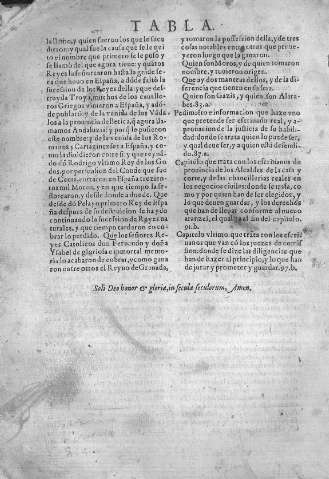 TABLA.
la Bethica, y quien fueron los que le suce
dieron y qual fue la causa que se le qui
to el nombre que primero se le puso y
se llamó del que agora tiene: y quãtos
Reyes la señorearon hasta la grã de se-
ca que houo en España, a dõde faltó la
sucession de los Reyes della y que des-
truyda Troya, muchos de los caualle
ros Griegos vinieron a España, y adõ-
de poblarõ y de la venida de los Vãda
los a la prouincia de Betica, q̃ agora lla-
mamos Andaluzia: y porq̃ le pusieron
este nombre: y de la venida de los Ro-
manos y Cartaginenses a España, y co-
mo la diuidieron entre si, y que reynã-
do dõ Rodrigo Vltimo Rey de los Go
dos, por traycion del Conde que fue
de Ceuta, entraron en España trezien-
tos mil Moros, y en que tiempo la se-
ñorearon, y desde donde a donde. Que
desde dõ Pelayo primero Rey de Espa
ña despues de su destruicion se ha ydo
continuando la sucession de Reyes na
turales, y que tiempo tardaron en co-
brar lo perdido. Que los señores Re-
yes Catolicos don Fernando y doña
Ysabel de gloriosa e inmortal memo-
ria lo acabaron de cobrar, y como gana
ron entre otros el Reyno de Granada,
y tomaron la possession della, y de tres
cosas notables entre otras que prome-
tieron luego que la ganaron.
Quien son Moros, y de quien tomaron
nombre, y tuuieron origen.
Que ay dos maneras dellos, y de la dife-
rencia que contra en ser es.
Que son Gazis, y quien son Alara-
bes 83.a.
Pedimiẽto e informacion que haze vno
que pretende ser escriuano real, y a-
prouacion de la justicia de su habili-
dad donde se trata quien lo puede ser,
y qual deue ser, y a quien està defendi-
do.87.a.
Capitulo que trata con los escriuanos de
prouincia de los Alcaldes de la casa y
corte, y de las chancillerias reales en
los negocios ciuiles: donde se trata, co
mo y por quien han de ser elegidos, y
lo que deuen guardar, y los derechos
que han de lleuar conforme al nueuo
aranzel, el qual va al fin del capitulo.
91.b.
Capitulo vltimo que trata con los escri-
uanos que van cõ los juezes de comis-
sion: donde se dize las diligencias que
han de hazer al principio, y lo que han
de jurar y prometer y guardar. 97.b.
Soli Deo honor & gloria, in secula seculorum, Amen.